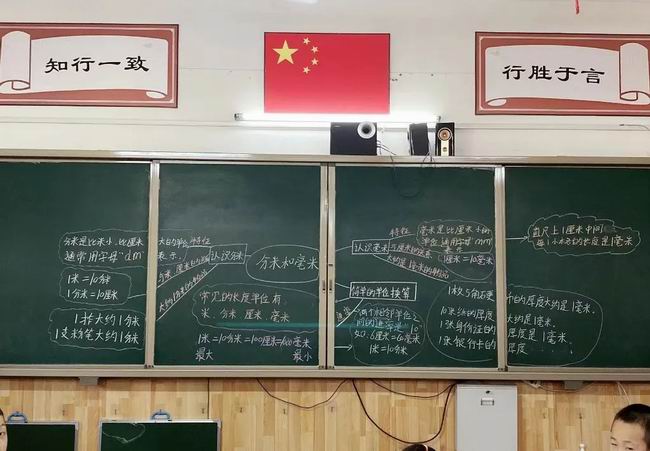 知行一致
行胜于言
分米是比米小,比厘米大的单位
通常用字母"dm"表示.
1米=10分米
1分米=10厘米
1拃大约1分米
1支粉笔大约1分米
特征
认识分米
分米和毫米
常见的长度单位有
米、分米 厘米 毫米
1米=10分米=100厘米=1000毫米
最大
最小
认识毫米
特征
毫米是比厘米小的
单位 通常用字母"mm"
表示
1厘米=10毫米
简单的单位换算
两个相邻单位
间的进率是10
如:6厘米=60毫米
1米=10分米
直尺上1厘米中间
每1小格的长度是1毫米
1枚1角硬币的厚度大约是1毫米.
10张纸的厚度大约是1毫米.
1张身份证的厚度是1毫米.
1张银行卡的厚度